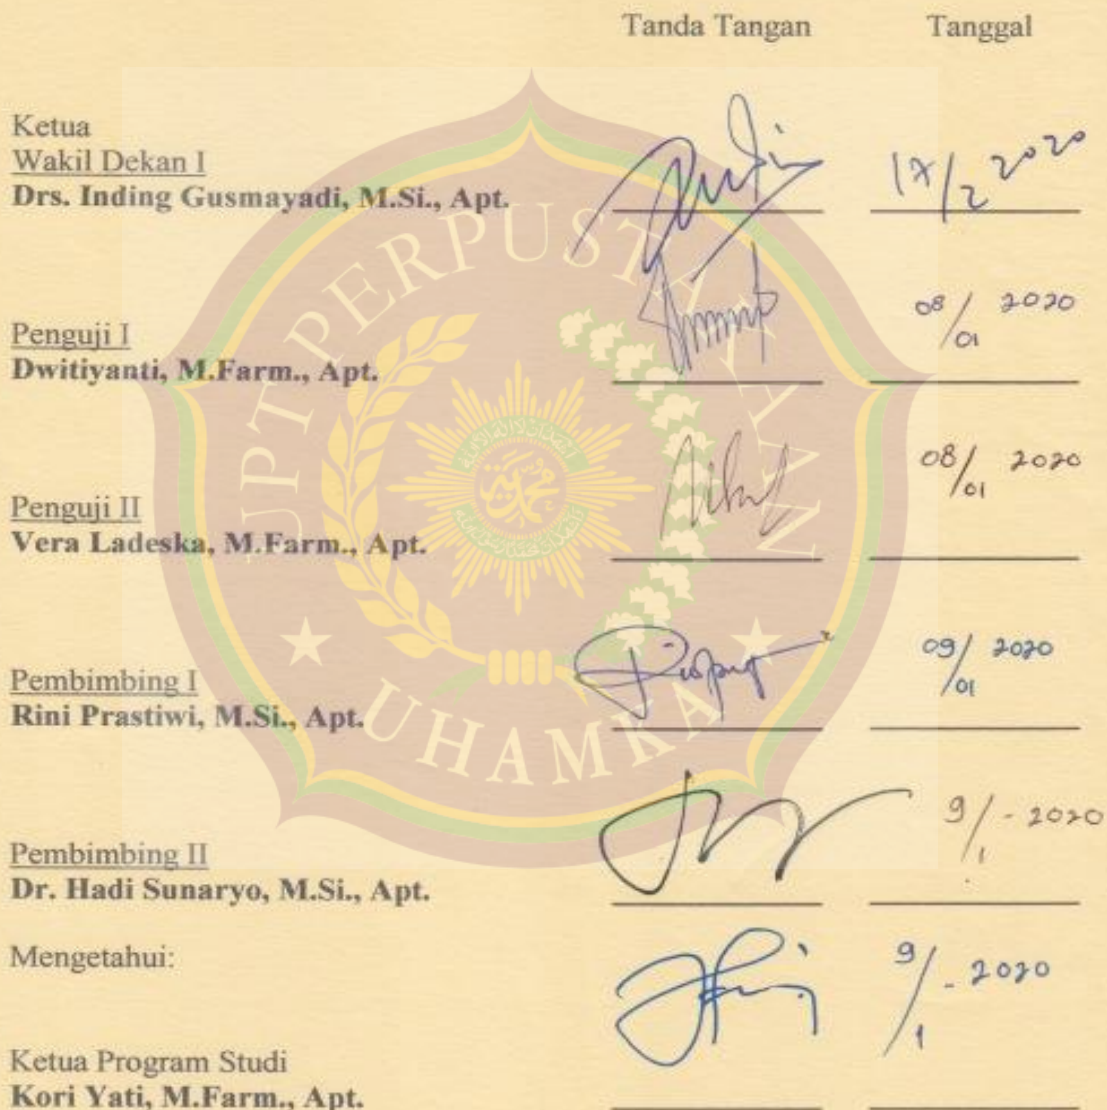 Tanda Tangan Tanggal
Ketua
Wakil Dekan I
Drs. Inding Gusmayadi, M.Si., Apt. 17/2 2020
Penguji I
Dwitiyanti, M.Farm., Apt. 08/01 2020
Penguji II
Vera Ladeska, M.Farm., Apt. 08/01 2020
Pembimbing I
Rini Prastiwi, M.Si., Apt. 09/01 2020
Pembimbing II
Dr. Hadi Sunaryo, M.Si., Apt. 9/1 - 2020
Mengetahui:
Ketua Program Studi
Kori Yati, M.Farm., Apt. 9/1 - 2020
UPT PERPUSTAKAAN
UHAMKA